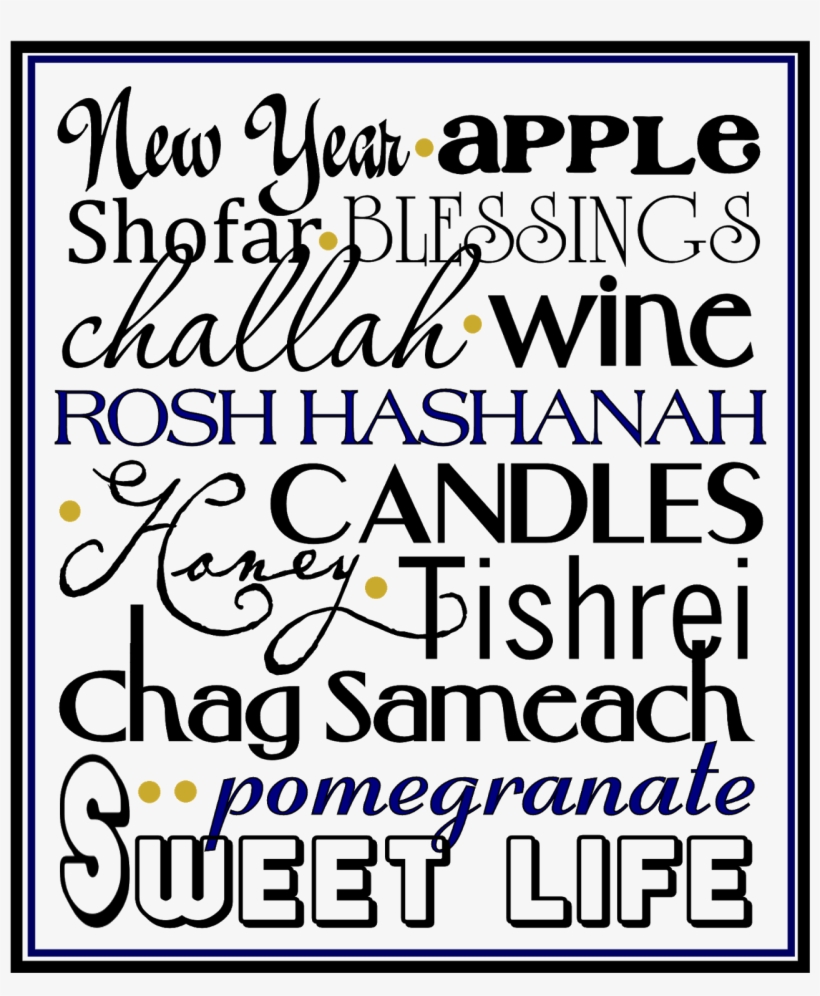 New Year • apple
Shofar • BLESSINGS
challah • wine
ROSH HASHANAH
• Honey CANDLES
• Tishrei
chag sameach
•• pomegranate
SWEET LIFE